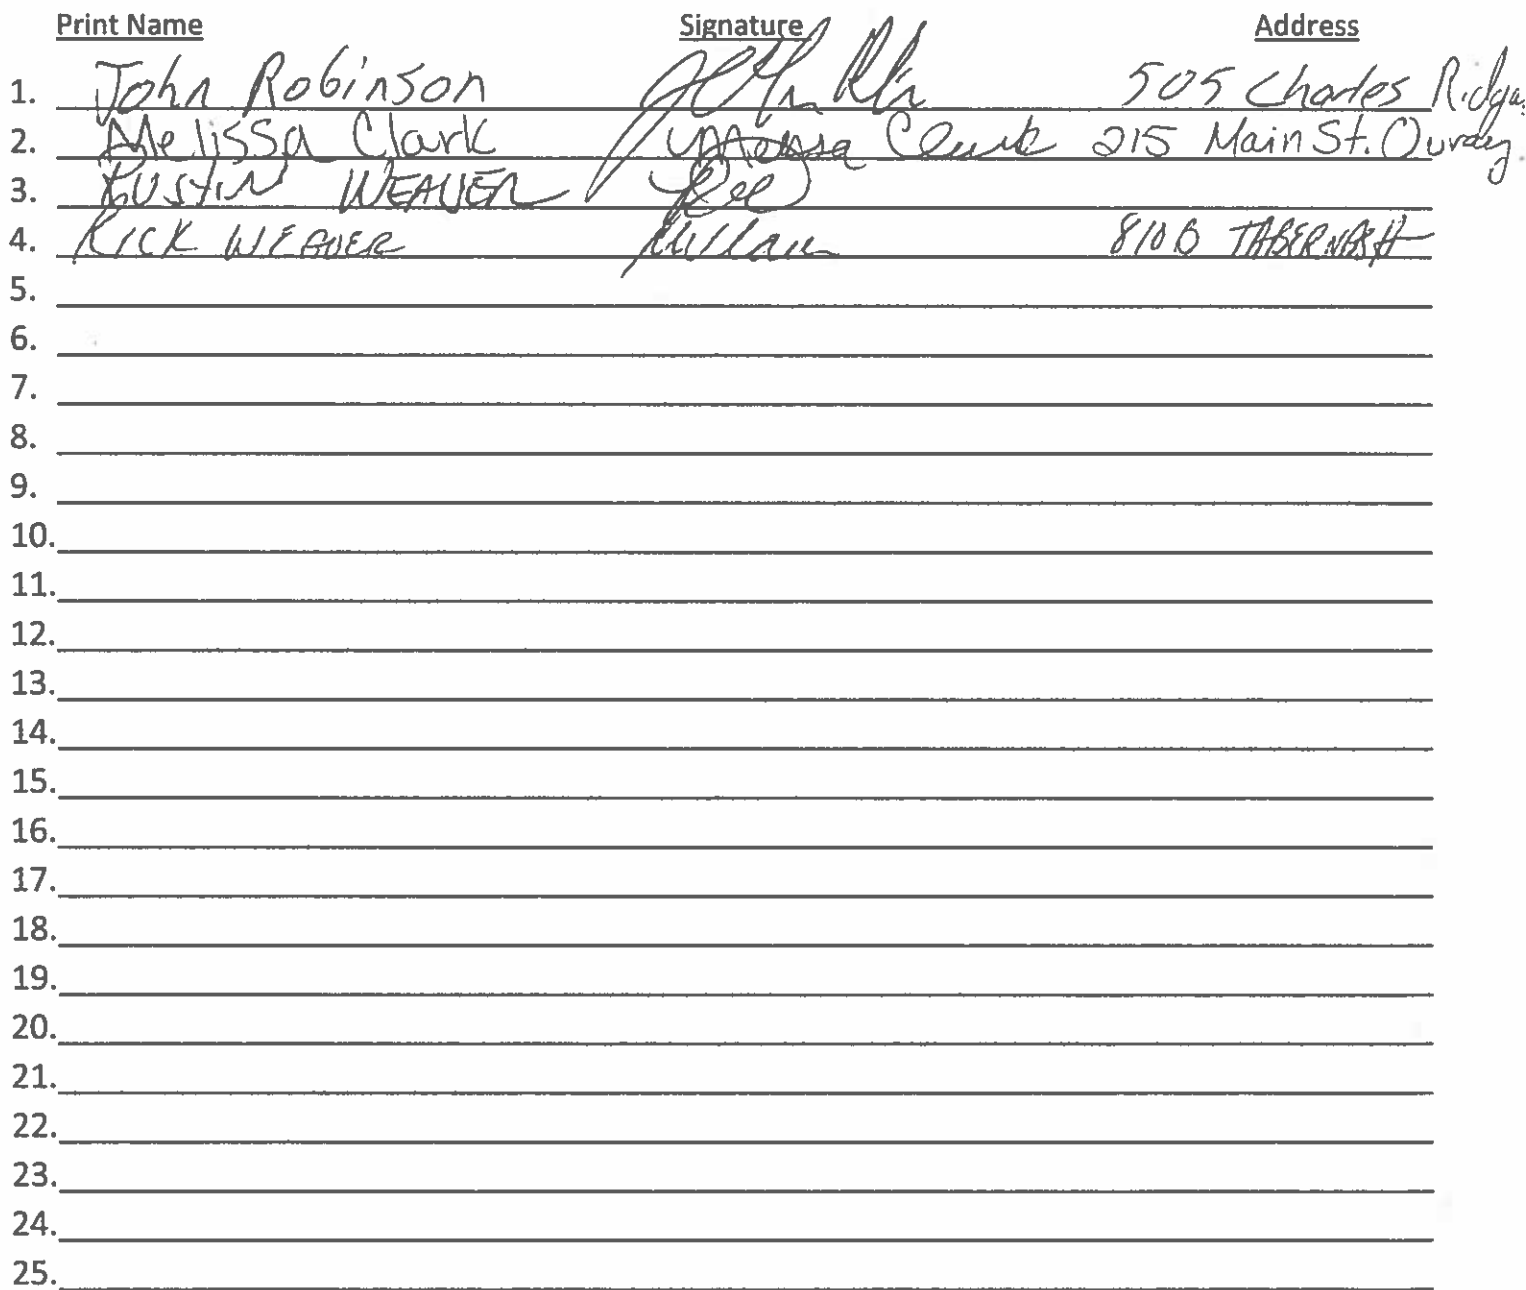 Print Name Signature Address
1. John Robinson 505 Charles
2. Melissa Clark Melissa Clark 215 Main St. Ouray
3. RUSTIN WEAVER
4. RICK WEAVER 810 B TABERNASH
5.
6.
7.
8.
9.
10.
11.
12.
13.
14.
15.
16.
17.
18.
19.
20.
21.
22.
23.
24.
25.